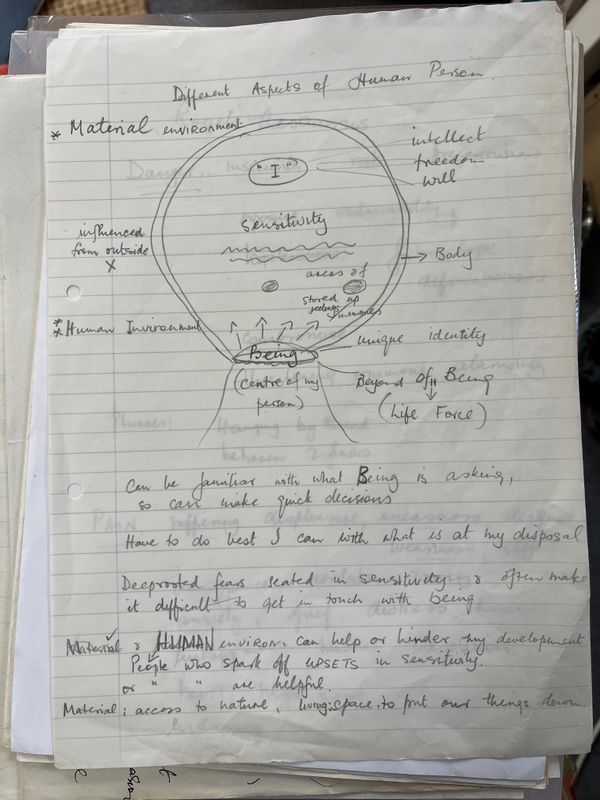 Different Aspects of Human Person
* Material environment
"I"
intellect
freedom
will
sensitivity
influenced
from outside
x
Body
areas of
stored up
feelings
memories
* Human Invironment
* 
Being
unique identity
(centre of my
person)
Beyond Of my Being
(Life Force)
Can be familiar with what Being is asking,
so can make quick decisions
Have to do best I can with what is at my disposal
Deeprooted fears seated in sensitivity & often make
it difficult to get in touch with being
Material & HUMAN environ. can help or hinder my development
People who spark off UPSETS in sensitivity.
or " " are helpful.
Material: access to nature, living space, to put our things down